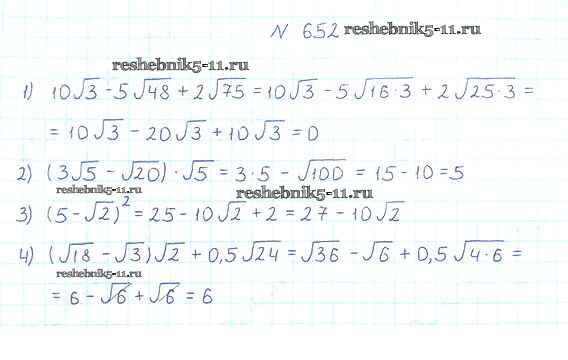 N 652 reshebnik5-11.ru
reshebnik5-11.ru
1) 10√3 - 5√48 + 2√75 = 10√3 - 5√16·3 + 2√25·3 =
= 10√3 - 20√3 + 10√3 = 0
2) (3√5 - √20)·√5 = 3·5 - √100 = 15 - 10 = 5
reshebnik5-11.ru reshebnik5-11.ru
3) (5 - √2)² = 25 - 10√2 + 2 = 27 - 10√2
4) (√18 - √3)√2 + 0,5√24 = √36 - √6 + 0,5√4·6 =
reshebnik5-11.ru
= 6 - √6 + √6 = 6